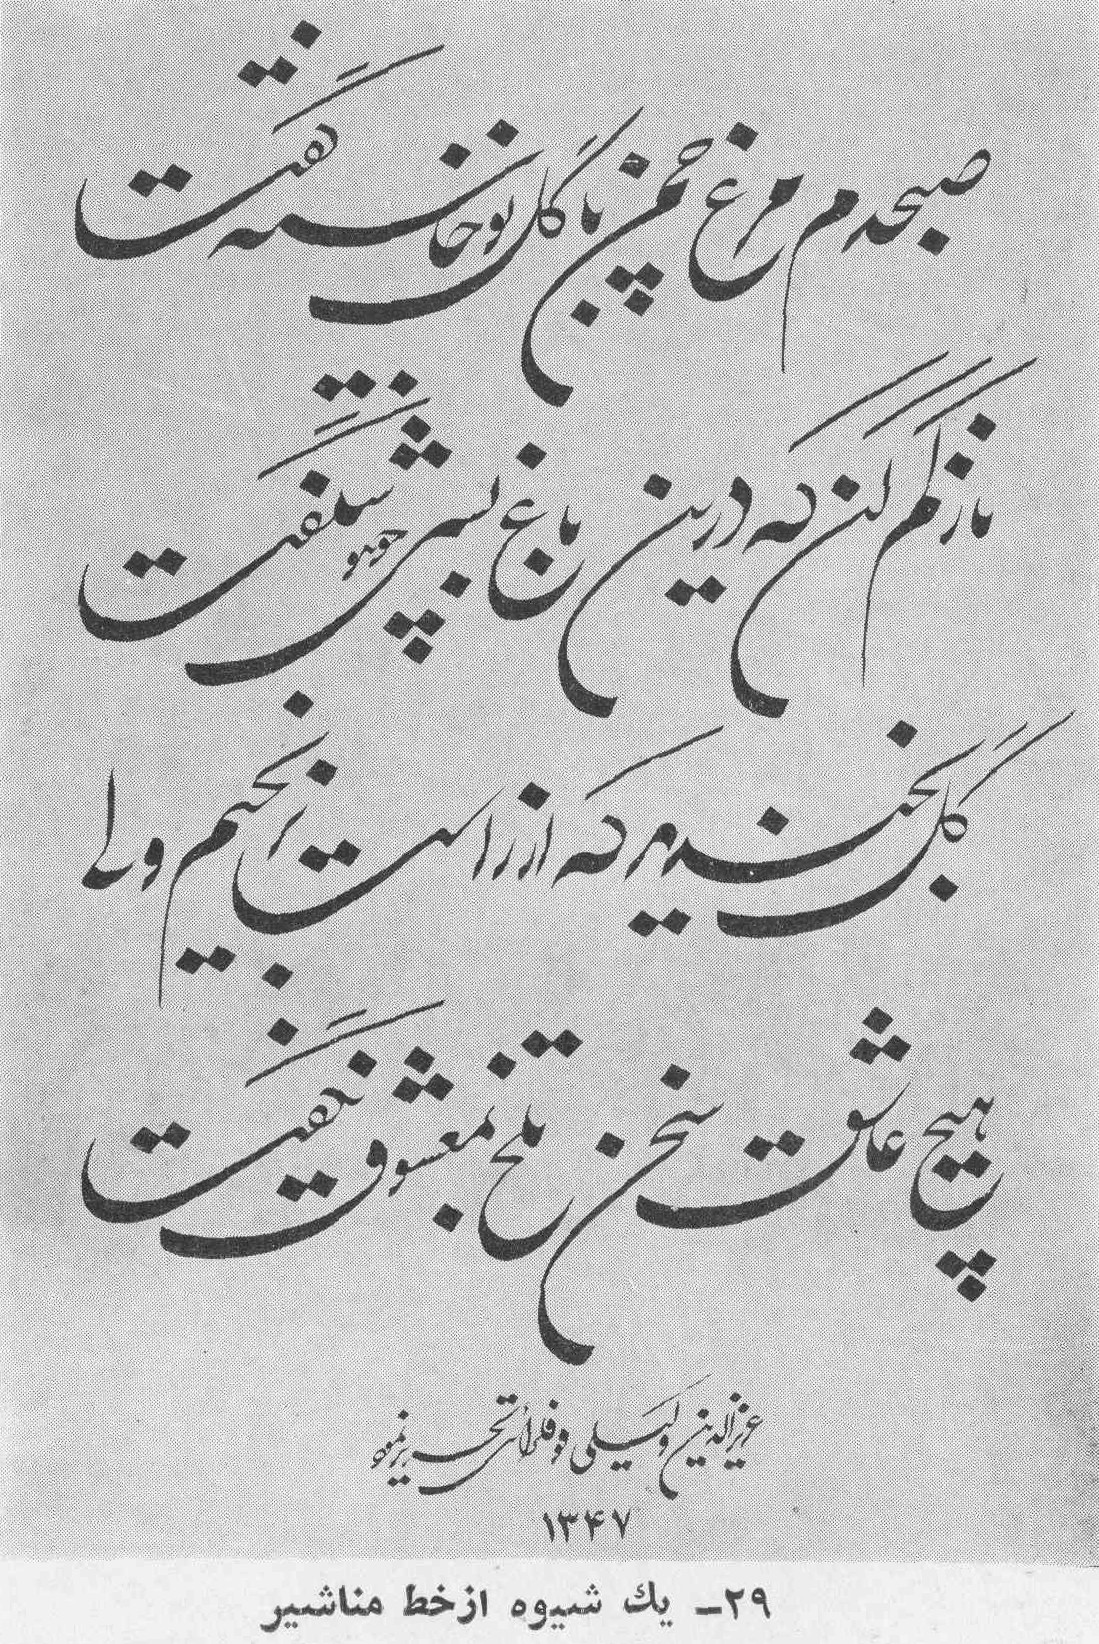 صبحدم مرغ چمن با گل نوخاسته گفت
ناز کم کن که درین باغ بسی چو تو شگفت
گل بخندید که از راست نرنجیم ولی
هیچ عاشق سخن تلخ بمعشوق نگفت
عزیزالدین وکیلی فوفلزائی تحریر نمود
۱۳۴۷
۲۹ـ یك شیوه از خط مناشیر